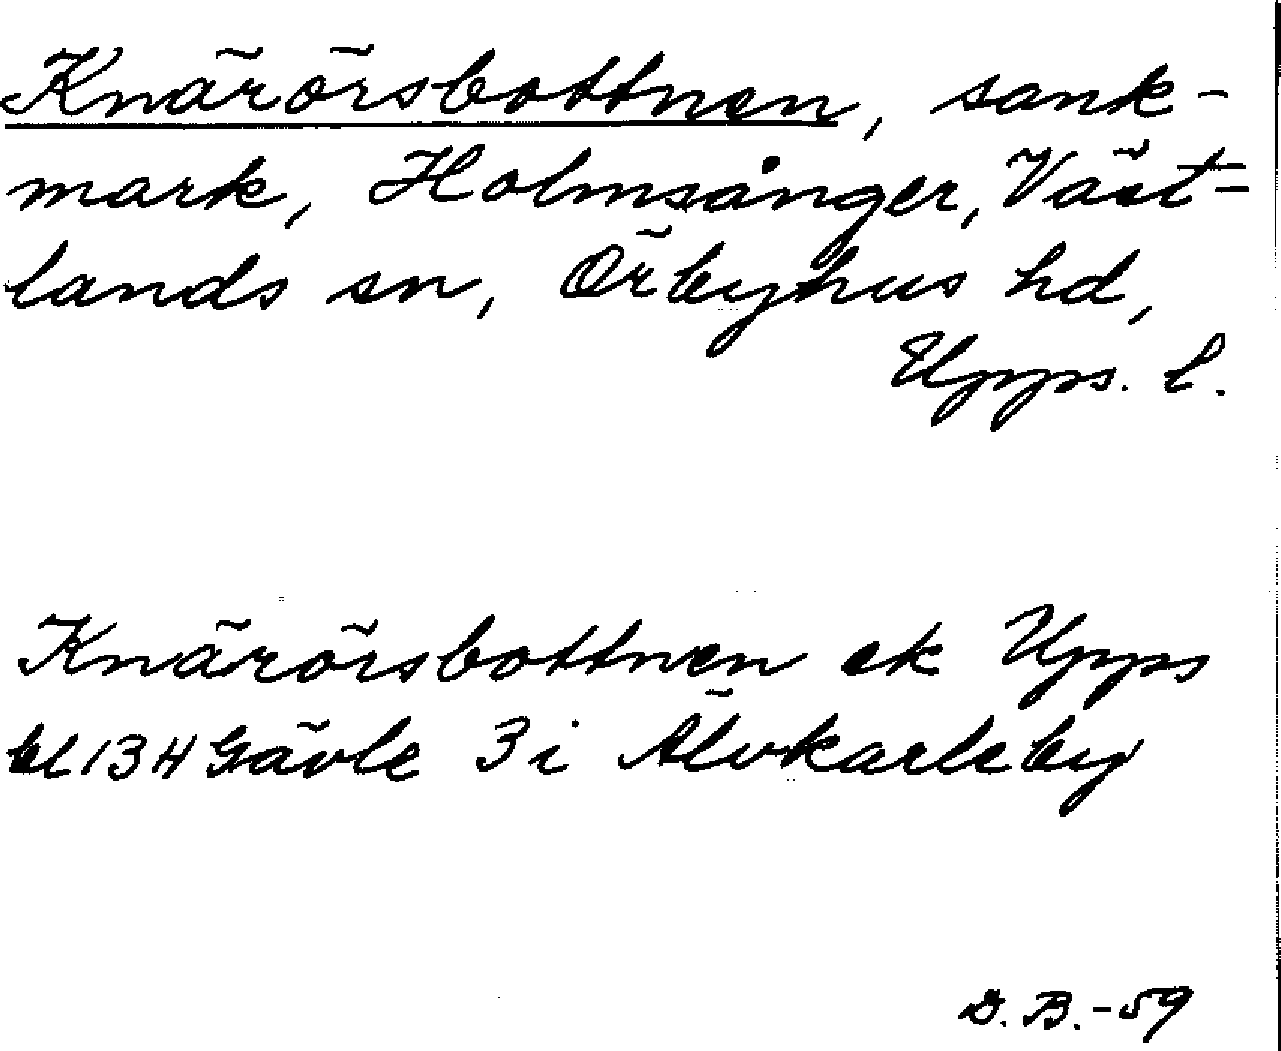 Knärörsbottnen, sank-
mark, Holmsånger, Väst-
lands sn, Örbyhus hd,
Upps. l.
Knärörsbottnen ek Upps
bl 13 H Gävle 3 i Älvkarleby
D. B. - 59